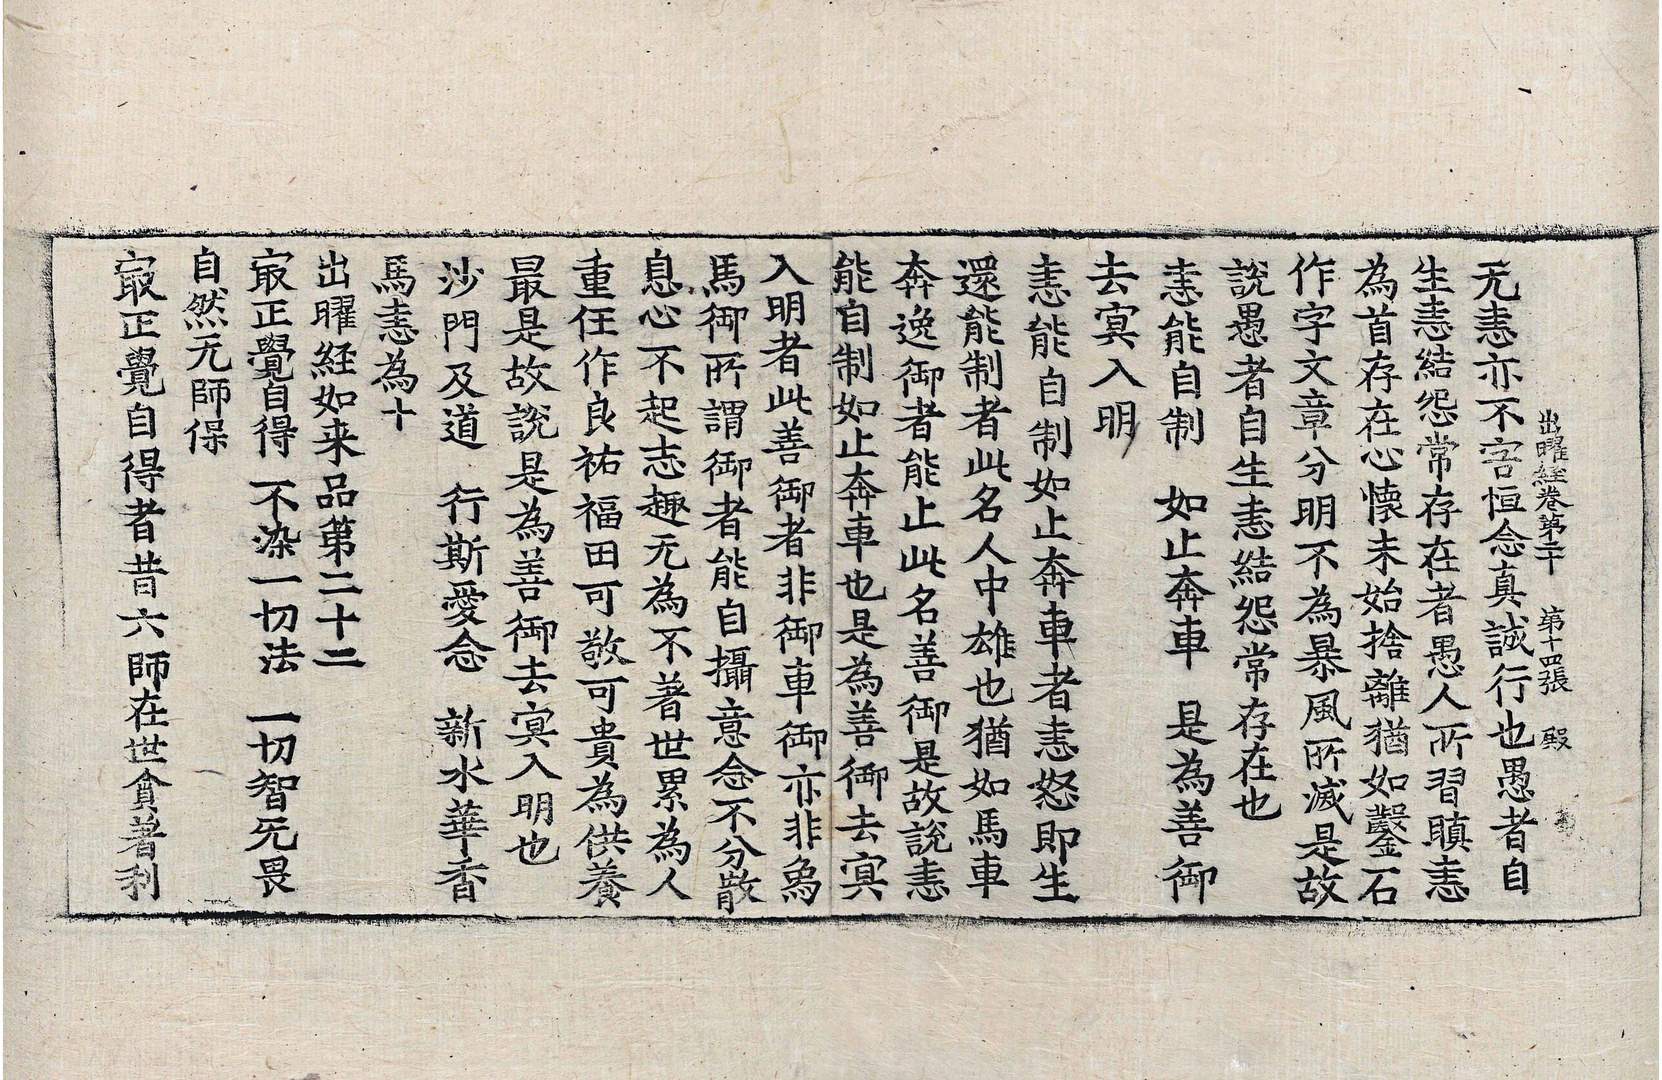 出曜經卷第二十　第十四張　殿
无恚亦不害恒念真誠行也愚者自
生恚結怨常存在者愚人所習瞋恚
為首存在心懷未始捨離猶如鑿石
作字文章分明不為暴風所滅是故
說愚者自生恚結怨常存在也
恚能自制　如止奔車　是為善御
去寘入明
恚能自制如止奔車者恚怒即生
還能制者此名人中雄也猶如馬車
奔逸御者能止此名善御是故說恚
能自制如止奔車也是為善御去寘
入明者此善御者非御車御亦非象
馬御所謂御者能自攝意念不分散
息心不起志趣无為不著世累為人
重任作良祐福田可敬可貴為供養
最是故說是為善御去寘入明也
沙門及道　行斯愛念　新水華香
馬恚為十
出曜経如来品第二十二
㝡正覺自得　不染一切法　一切智无畏
自然无師保
㝡正覺自得者昔六師在世貪著利